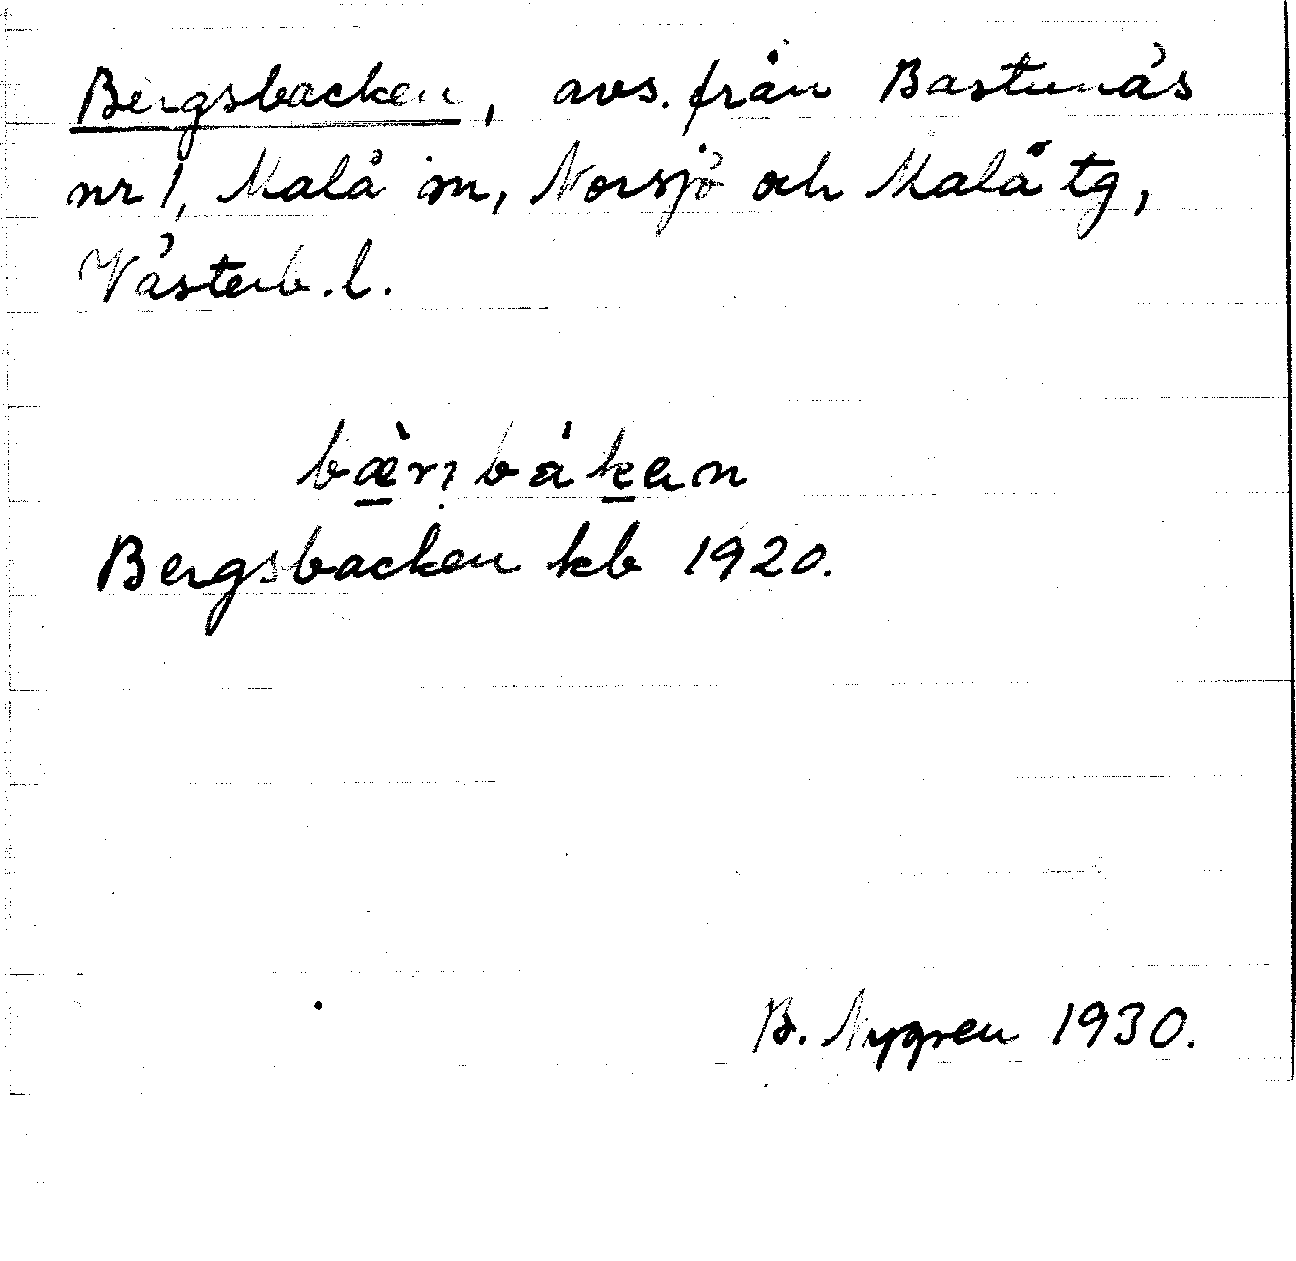 Bergsbacken, avs. från Bastunäs
nr 1, Malå sn, Norsjö och Malå tg,
Västerb. l.
Bergsbacken kb 1920.
B. Nygren 1930.